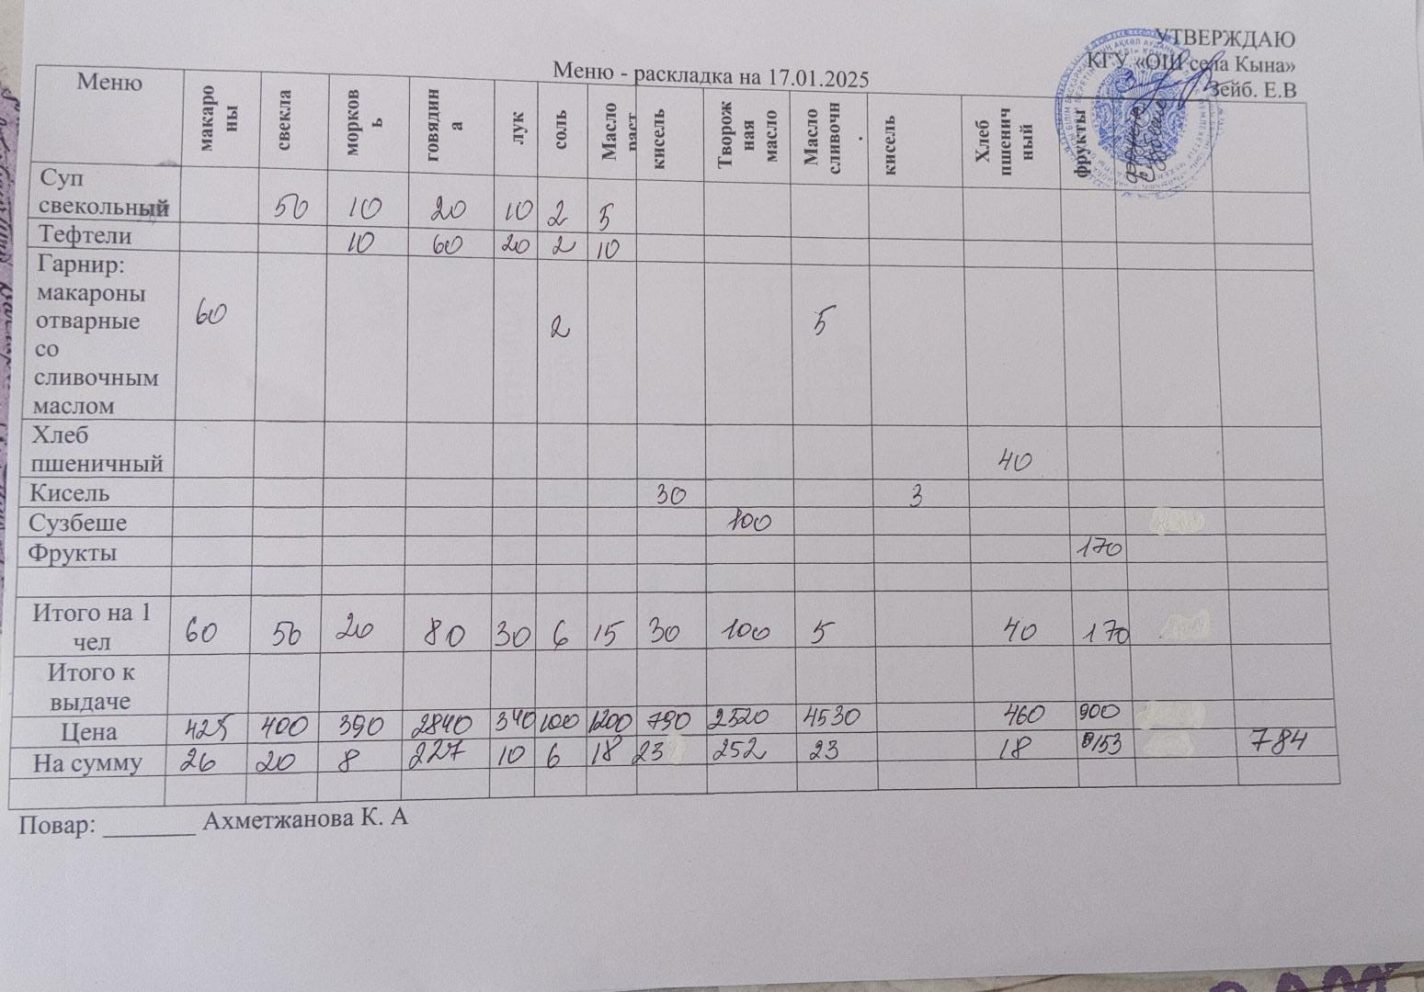 УТВЕРЖДАЮ
КГУ «ОШ села Кына»
Зейб. Е.В
Меню - раскладка на 17.01.2025
Меню макаро ны свекла морков ь говядин а лук соль Масло раст кисель Творож ная масло Масло сливочн . кисель Хлеб пшенич ный фрукты
Суп
свекольный 50 10 20 10 2 5
Тефтели 10 60 20 2 10
Гарнир:
макароны
отварные 60 2 5
со
сливочным
маслом
Хлеб
пшеничный 40
Кисель 30 3
Сузбеше 100
Фрукты 170
Итого на 1
чел 60 50 20 80 30 6 15 30 100 5 40 170
Итого к
выдаче
Цена 425 400 390 2840 340 100 1200 790 2520 4530 460 900
На сумму 26 20 8 227 10 6 18 23 252 23 18 153 784
Повар: ________ Ахметжанова К. А